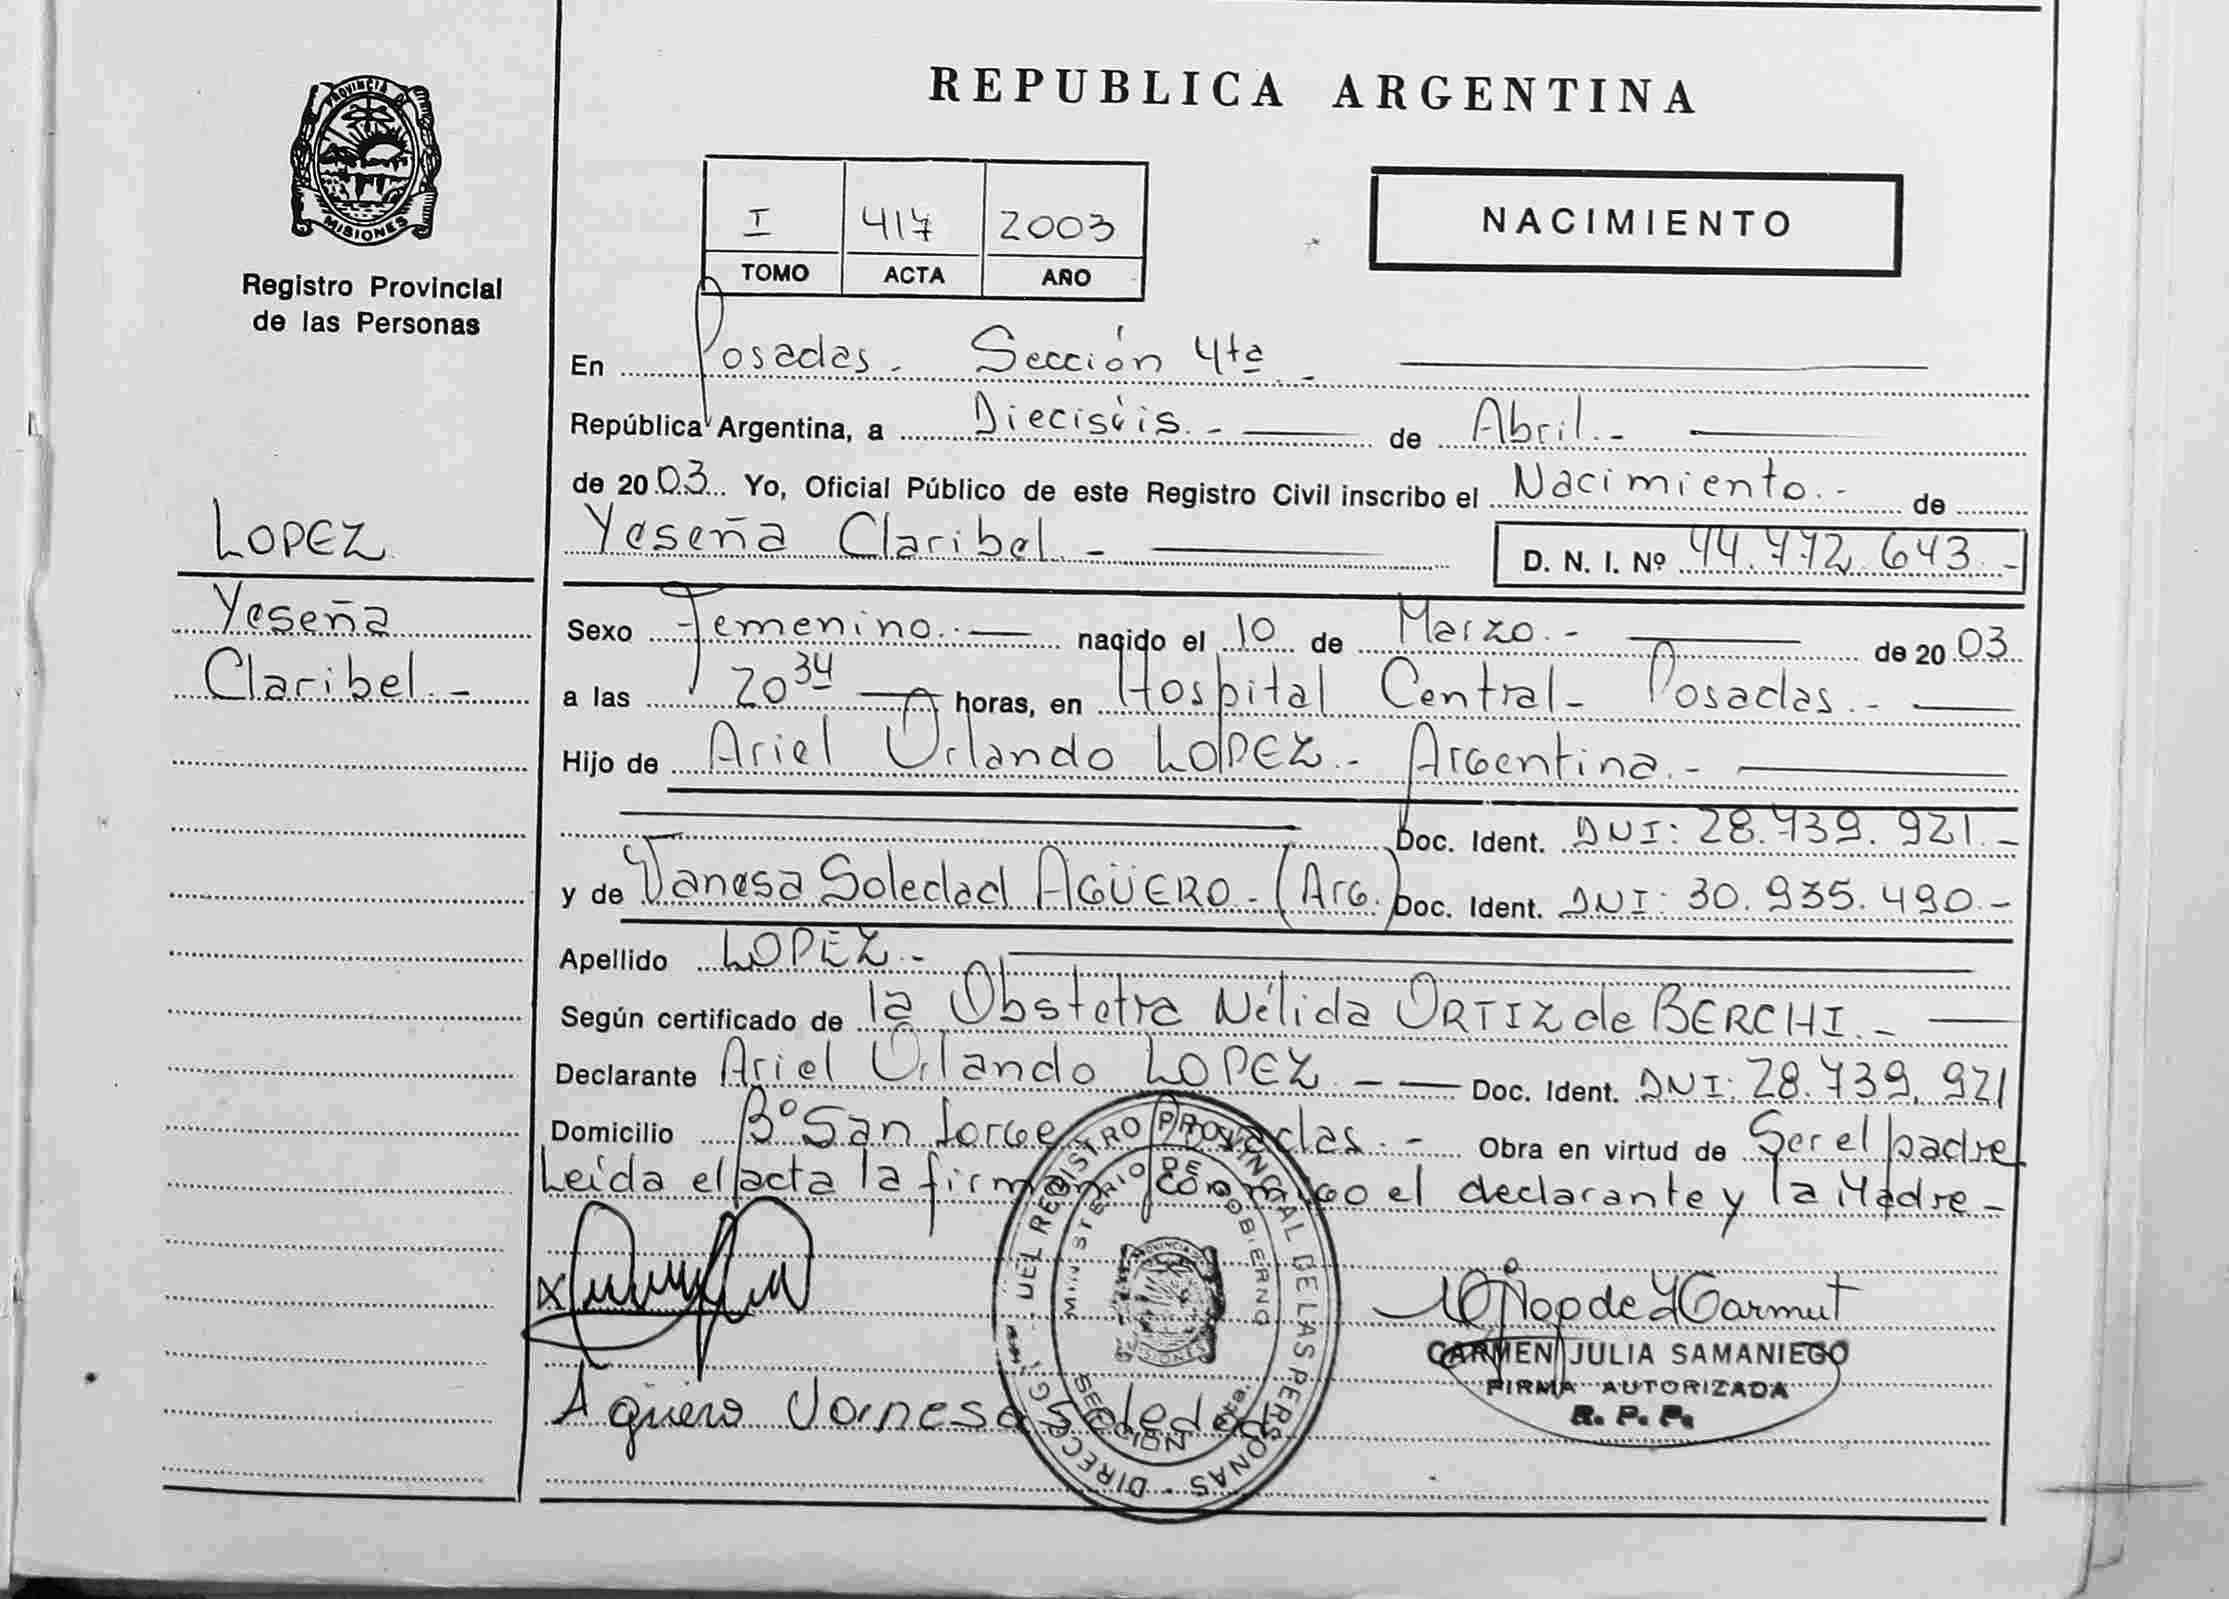 REPUBLICA ARGENTINA
PROVINCIA DE
MISIONES
Registro Provincial
de las Personas
I 417 2003
TOMO ACTA AÑO
NACIMIENTO
En Posadas.- Sección 4ta.-
República Argentina, a Dieciséis.- de Abril.-
de 2003 Yo, Oficial Público de este Registro Civil inscribo el Nacimiento.- de
Yeseña Claribel.- D. N. I. Nº 44.772.643.-
LOPEZ
Yeseña
Claribel.-
Sexo Femenino.- nacido el 10 de Marzo.- de 2003
a las 20 34 horas, en Hospital Central- Posadas.-
Hijo de Ariel Orlando LOPEZ.- Argentina.-
Doc. Ident. DNI: 28.739.921.-
y de Vanesa Soledad AGÜERO.- (Arg.) Doc. Ident. DNI: 30.935.490.-
Apellido LOPEZ.-
Según certificado de la Obstetra Nélida ORTIZ de BERCHI.-
Declarante Ariel Orlando LOPEZ.- Doc. Ident. DNI: 28.739.921
Domicilio Bº San Jorge Posadas.- Obra en virtud de Ser el padre
Leída el acta la firman conmigo el declarante y la Madre-
DIRECC. GRAL. DEL REGISTRO PROVINCIAL DE LAS PERSONAS
MINISTERIO DE GOBIERNO
SECCION 4ta.
CARMEN JULIA SAMANIEGO
FIRMA AUTORIZADA
R. P. P.
Agüero Vanesa Soledad